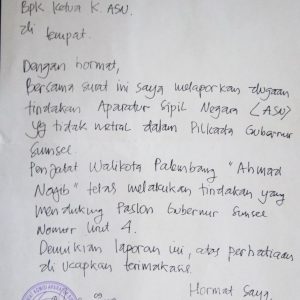 Bpk Ketua K. ASN.
di tempat.
Dengan hormat,
Bersama surat ini saya melaporkan dugaan
tindakan Aparatur Sipil Negara (ASN)
yg tidak netral dalam Pilkada Gubernur
Sumsel.
Penjabat Walikota Palembang "Ahmad
Najib" telas melakukan tindakan yang
mendukung Paslon Gubernur Sumsel
Nomor Urut 4.
Demikian laporan ini, atas perhatiaan
di ucapkan terimakasi.
Hormat Saya,